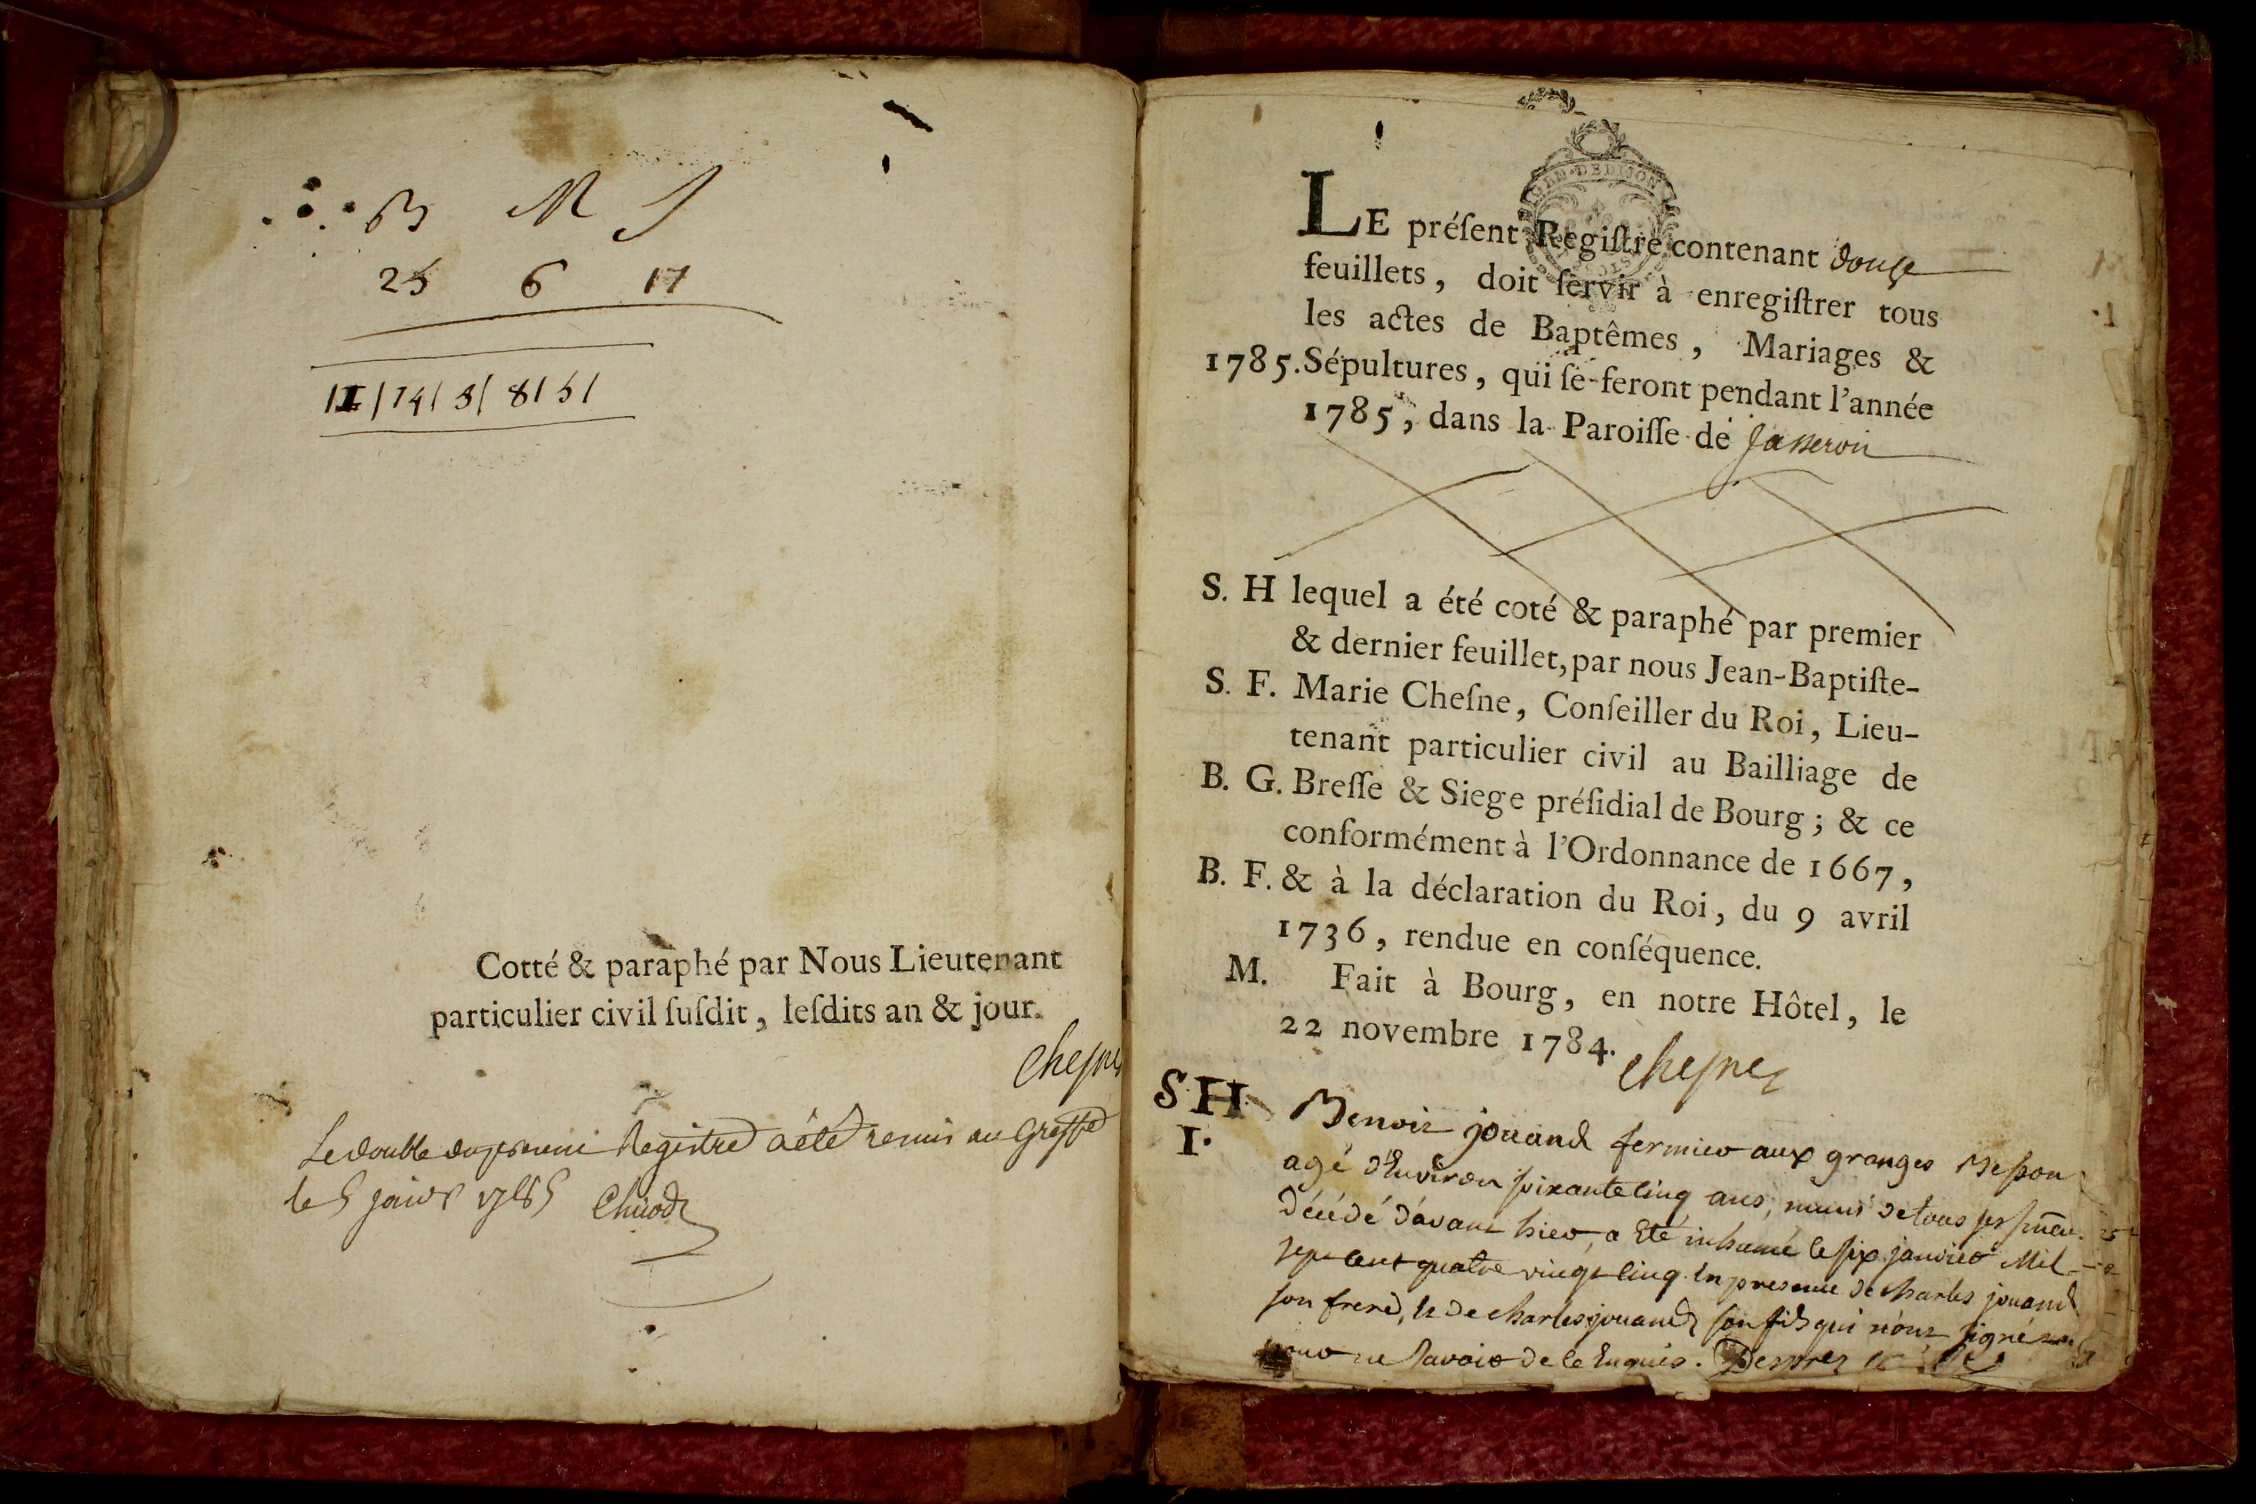 B M S
25 6 17
11 / 14 / 3 / 8 / 5 /
Cotté & paraphé par Nous Lieutenant
particulier civil ſuſdit, leſdits an & jour.
Chesne
Le double du présent Registre a été remis au Greffe
le 5 janvr 1785
GEN. DE DIJON
LE préſent Regiſtre contenant douze
feuillets, doit ſervir à enregiſtrer tous
les actes de Baptêmes, Mariages &
1785. Sépultures, qui ſe feront pendant l'année
1785, dans la Paroiſſe de Jasseron
S. H lequel a été coté & paraphé par premier
& dernier feuillet, par nous Jean-Baptiſte-
S. F. Marie Cheſne, Conſeiller du Roi, Lieu-
tenant particulier civil au Bailliage de
B. G. Breſſe & Siege préſidial de Bourg ; & ce
conformément à l'Ordonnance de 1667,
B. F. & à la déclaration du Roi, du 9 avril
1736, rendue en conſéquence.
M. Fait à Bourg, en notre Hôtel, le
22 novembre 1784.
Chesne
S. H. Benoit jouand fermier aux granges
I. agé d'Environ soixante cinq ans, muni de tous ses
décédé d'avant hier, a Eté inhumé le six janvier Mil
sept cent quatre vingt cinq. en presence de charles jouand
son frere, et de charles jouand son fils qui n'ont signé
pour ne savoir de ce Enquis.